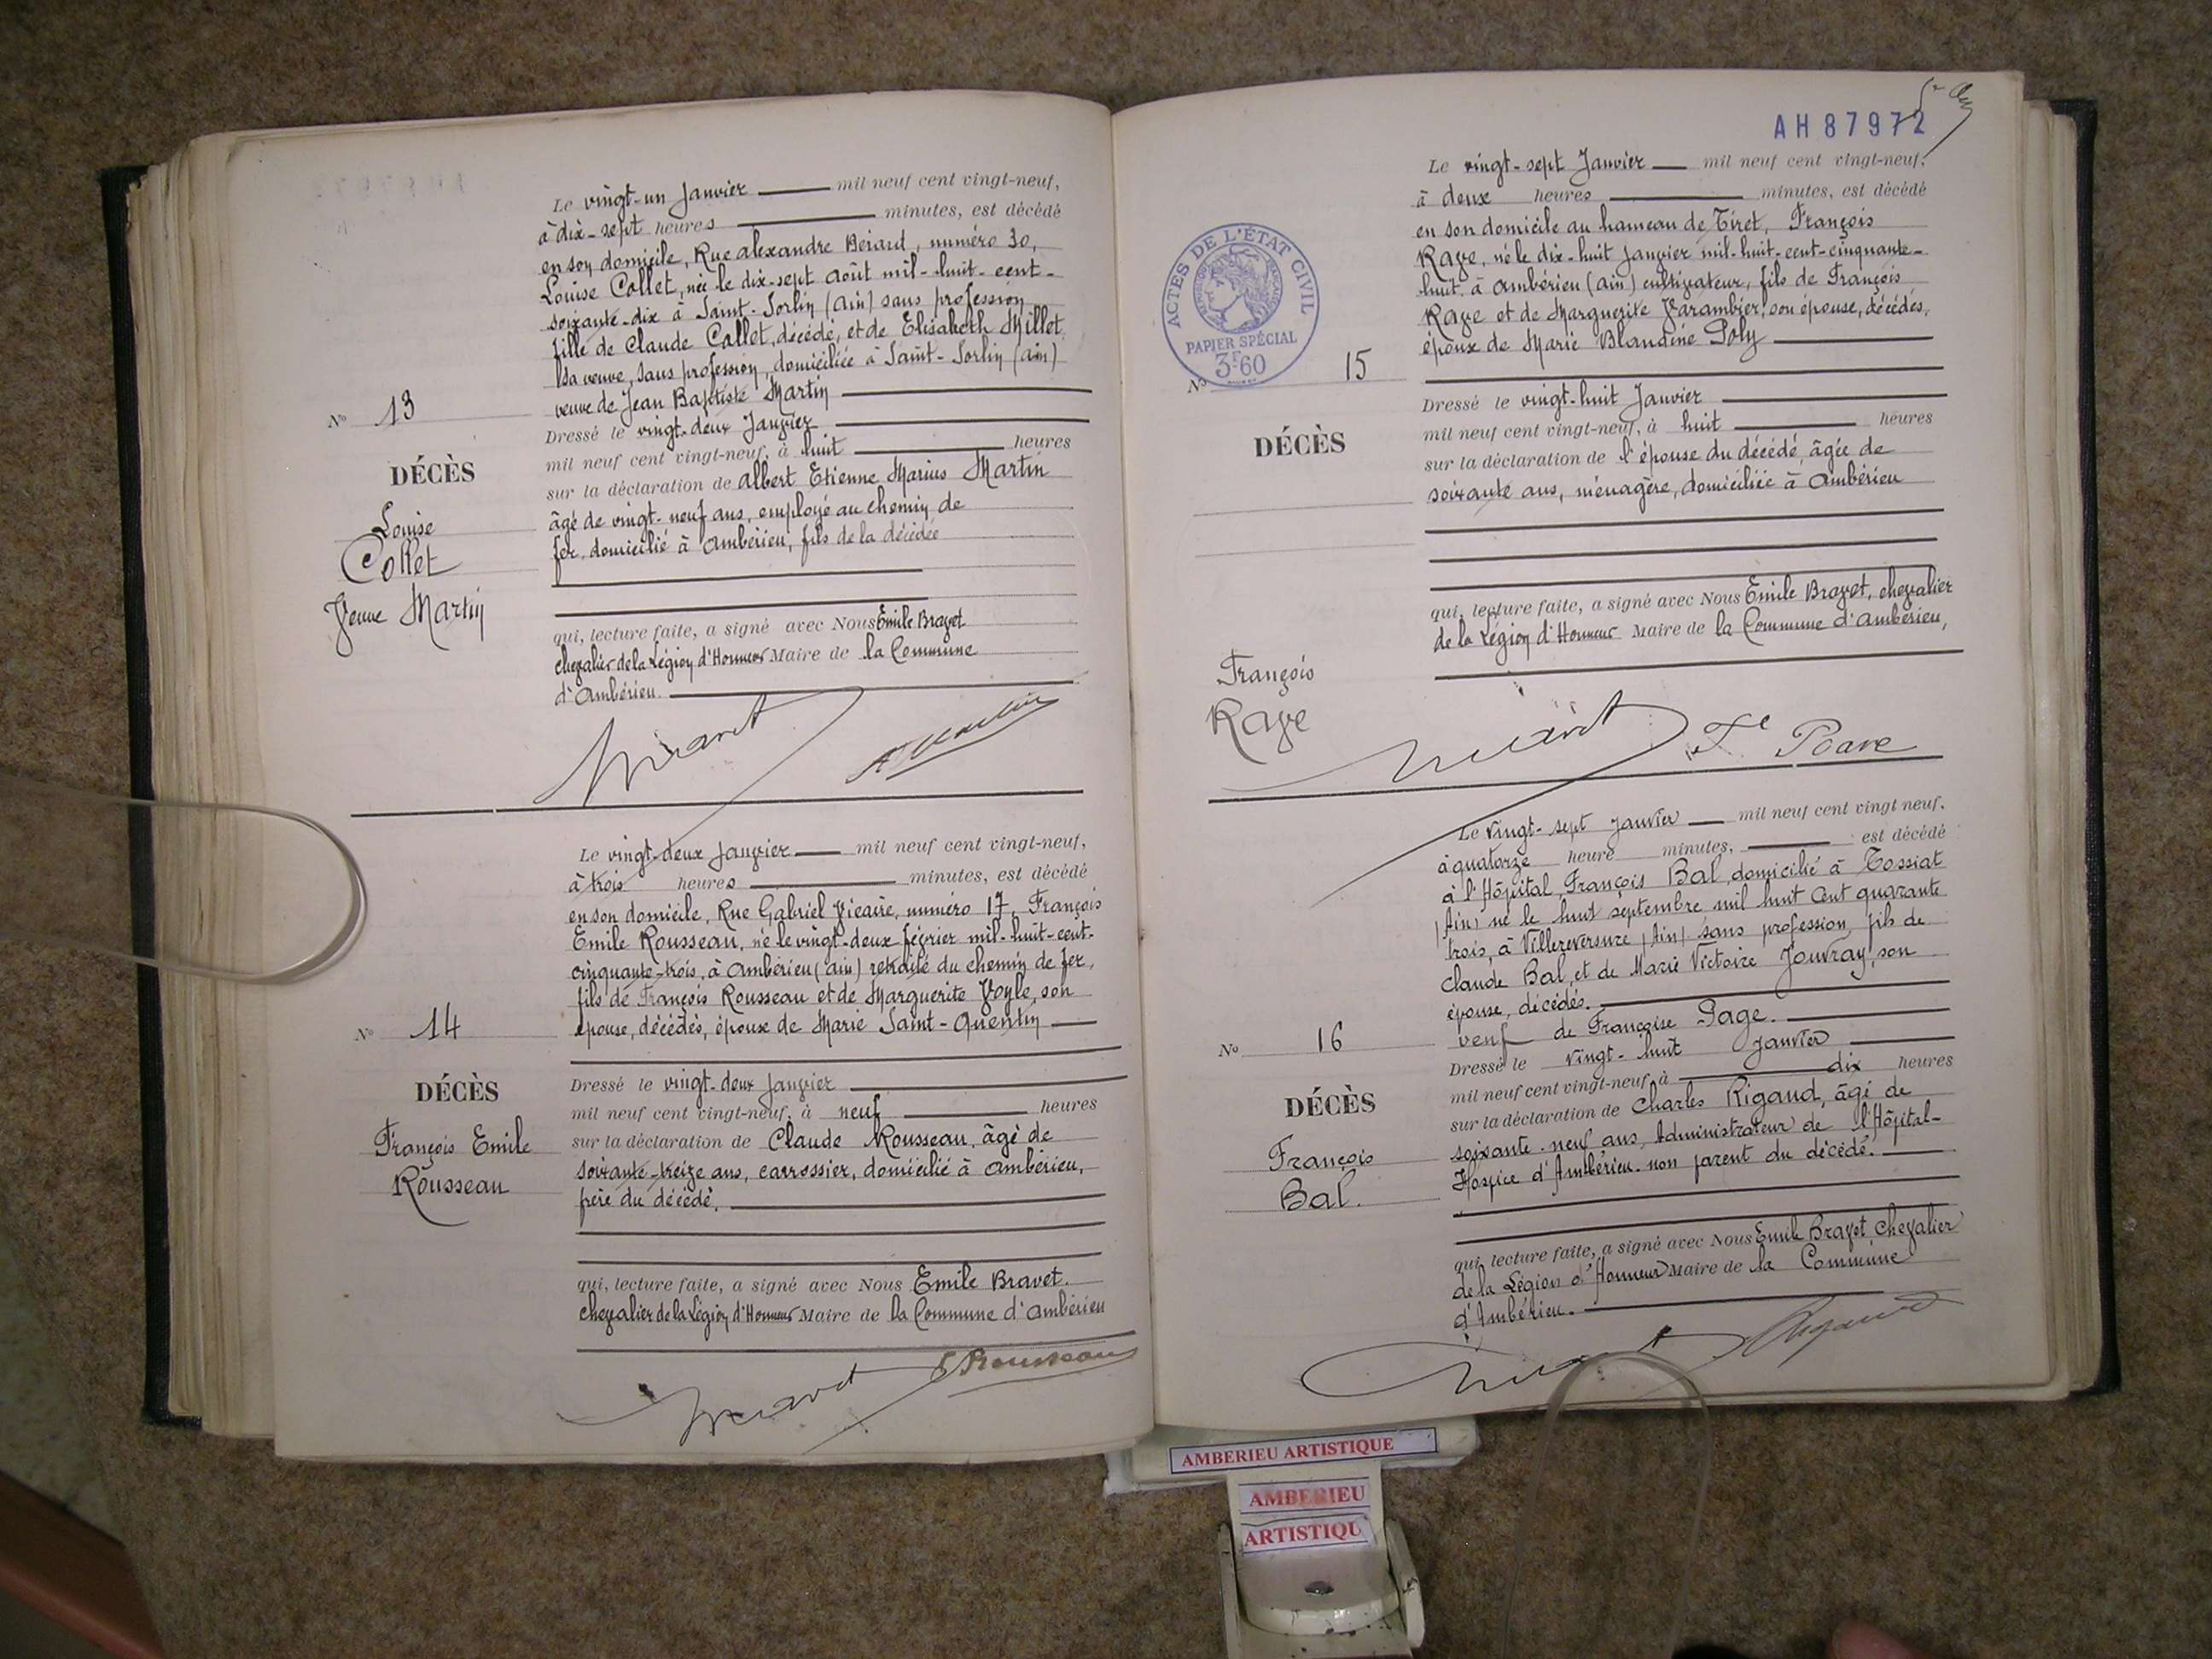 Le vingt-un Janvier mil neuf cent vingt-neuf,
à dix-sept heures minutes, est décédé
en son domicile, Rue Alexandre Bérard, numéro 30,
Louise Collet, née le dix-sept août mil-huit-cent-
soixante-dix à Saint-Sorlin (Ain) sans profession
fille de Claude Collet, décédé, et de Elisabeth Millet
sa veuve, sans profession, domiciliée à Saint-Sorlin (Ain)
veuve de Jean Baptiste Martin
Dressé le vingt-deux Janvier
mil neuf cent vingt-neuf, à huit heures
sur la déclaration de Albert Etienne Marius Martin
âgé de vingt-neuf ans, employé au chemin de
fer, domicilié à Ambérieu, fils de la décédée
qui, lecture faite, a signé avec Nous Emile Bravet
chevalier de la Légion d'Honneur Maire de la Commune
d'Ambérieu.
No 13
DÉCÈS
Louise
Collet
Veuve Martin
Bravet
A Martin
Le vingt-deux Janvier mil neuf cent vingt-neuf,
à trois heures minutes, est décédé
en son domicile, Rue Gabriel Vicaire, numéro 17, François
Emile Rousseau, né le vingt-deux février mil-huit-cent-
cinquante-trois, à Ambérieu (Ain) retraité du chemin de fer,
fils de François Rousseau et de Marguerite Voyle, son
épouse, décédés, époux de Marie Saint-Quentin
Dressé le vingt-deux Janvier
mil neuf cent vingt-neuf, à neuf heures
sur la déclaration de Claude Rousseau, âgé de
soixante-treize ans, carrossier, domicilié à Ambérieu,
frère du décédé.
qui, lecture faite, a signé avec Nous Emile Bravet.
chevalier de la Légion d'Honneur Maire de la Commune d'Ambérieu
No 14
DÉCÈS
François Emile
Rousseau
Bravet
Rousseau
AH 87972
Le vingt-sept Janvier mil neuf cent vingt-neuf,
à deux heures minutes, est décédé
en son domicile au hameau de Tiret, François
Rave, né le dix-huit Janvier mil-huit-cent-cinquante-
huit à Ambérieu (Ain) cultivateur, fils de François
Rave et de Marguerite Varambier, son épouse, décédés,
époux de Marie Blandine Poly
Dressé le vingt-huit Janvier
mil neuf cent vingt-neuf, à huit heures
sur la déclaration de l'épouse du décédé, âgée de
soixante ans, ménagère, domiciliée à Ambérieu
qui, lecture faite, a signé avec Nous Emile Bravet, chevalier
de la Légion d'Honneur Maire de la Commune d'Ambérieu,
ACTES DE L'ÉTAT CIVIL
PAPIER SPÉCIAL
3F60
No 15
DÉCÈS
François
Rave
Bravet
Rave
Le vingt-sept Janvier mil neuf cent vingt neuf,
à quatorze heure minutes, est décédé
à l'Hôpital, François Bal, domicilié à Tossiat
(Ain) né le huit septembre mil huit cent quarante
trois, à Villereversure (Ain) sans profession, fils de
Claude Bal, et de Marie Victoire Jouvray, son
épouse, décédés.
veuf de Françoise Page.
Dressé le vingt-huit Janvier
mil neuf cent vingt-neuf à dix heures
sur la déclaration de Charles Rigaud, âgé de
soixante-neuf ans, Administrateur de l'Hôpital-
Hospice d'Ambérieu non parent du décédé.
qui, lecture faite, a signé avec Nous Emile Bravet chevalier
de la Légion d'Honneur Maire de la Commune
d'Ambérieu.
No 16
DÉCÈS
François
Bal.
Bravet
Rigaud
AMBERIEU ARTISTIQUE
AMBERIEU
ARTISTIQU